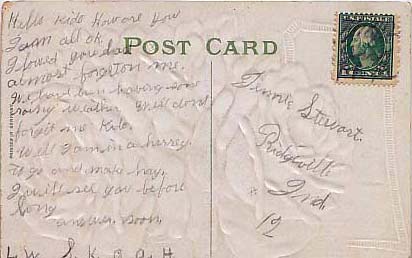 Hello Kido How are you
I am all ok.
I loved you had
almost forgotton me.
We have been having some
rainy weather. Well dont
forget me Kido.
Well I am in a hurrey.
to go and make hay.
I will see you before
long
answer soon,
L W S. K. O G H
POST CARD
U.S. POSTAGE
1 CENT 1
Stewart.
Ridgeville
Ind.
12